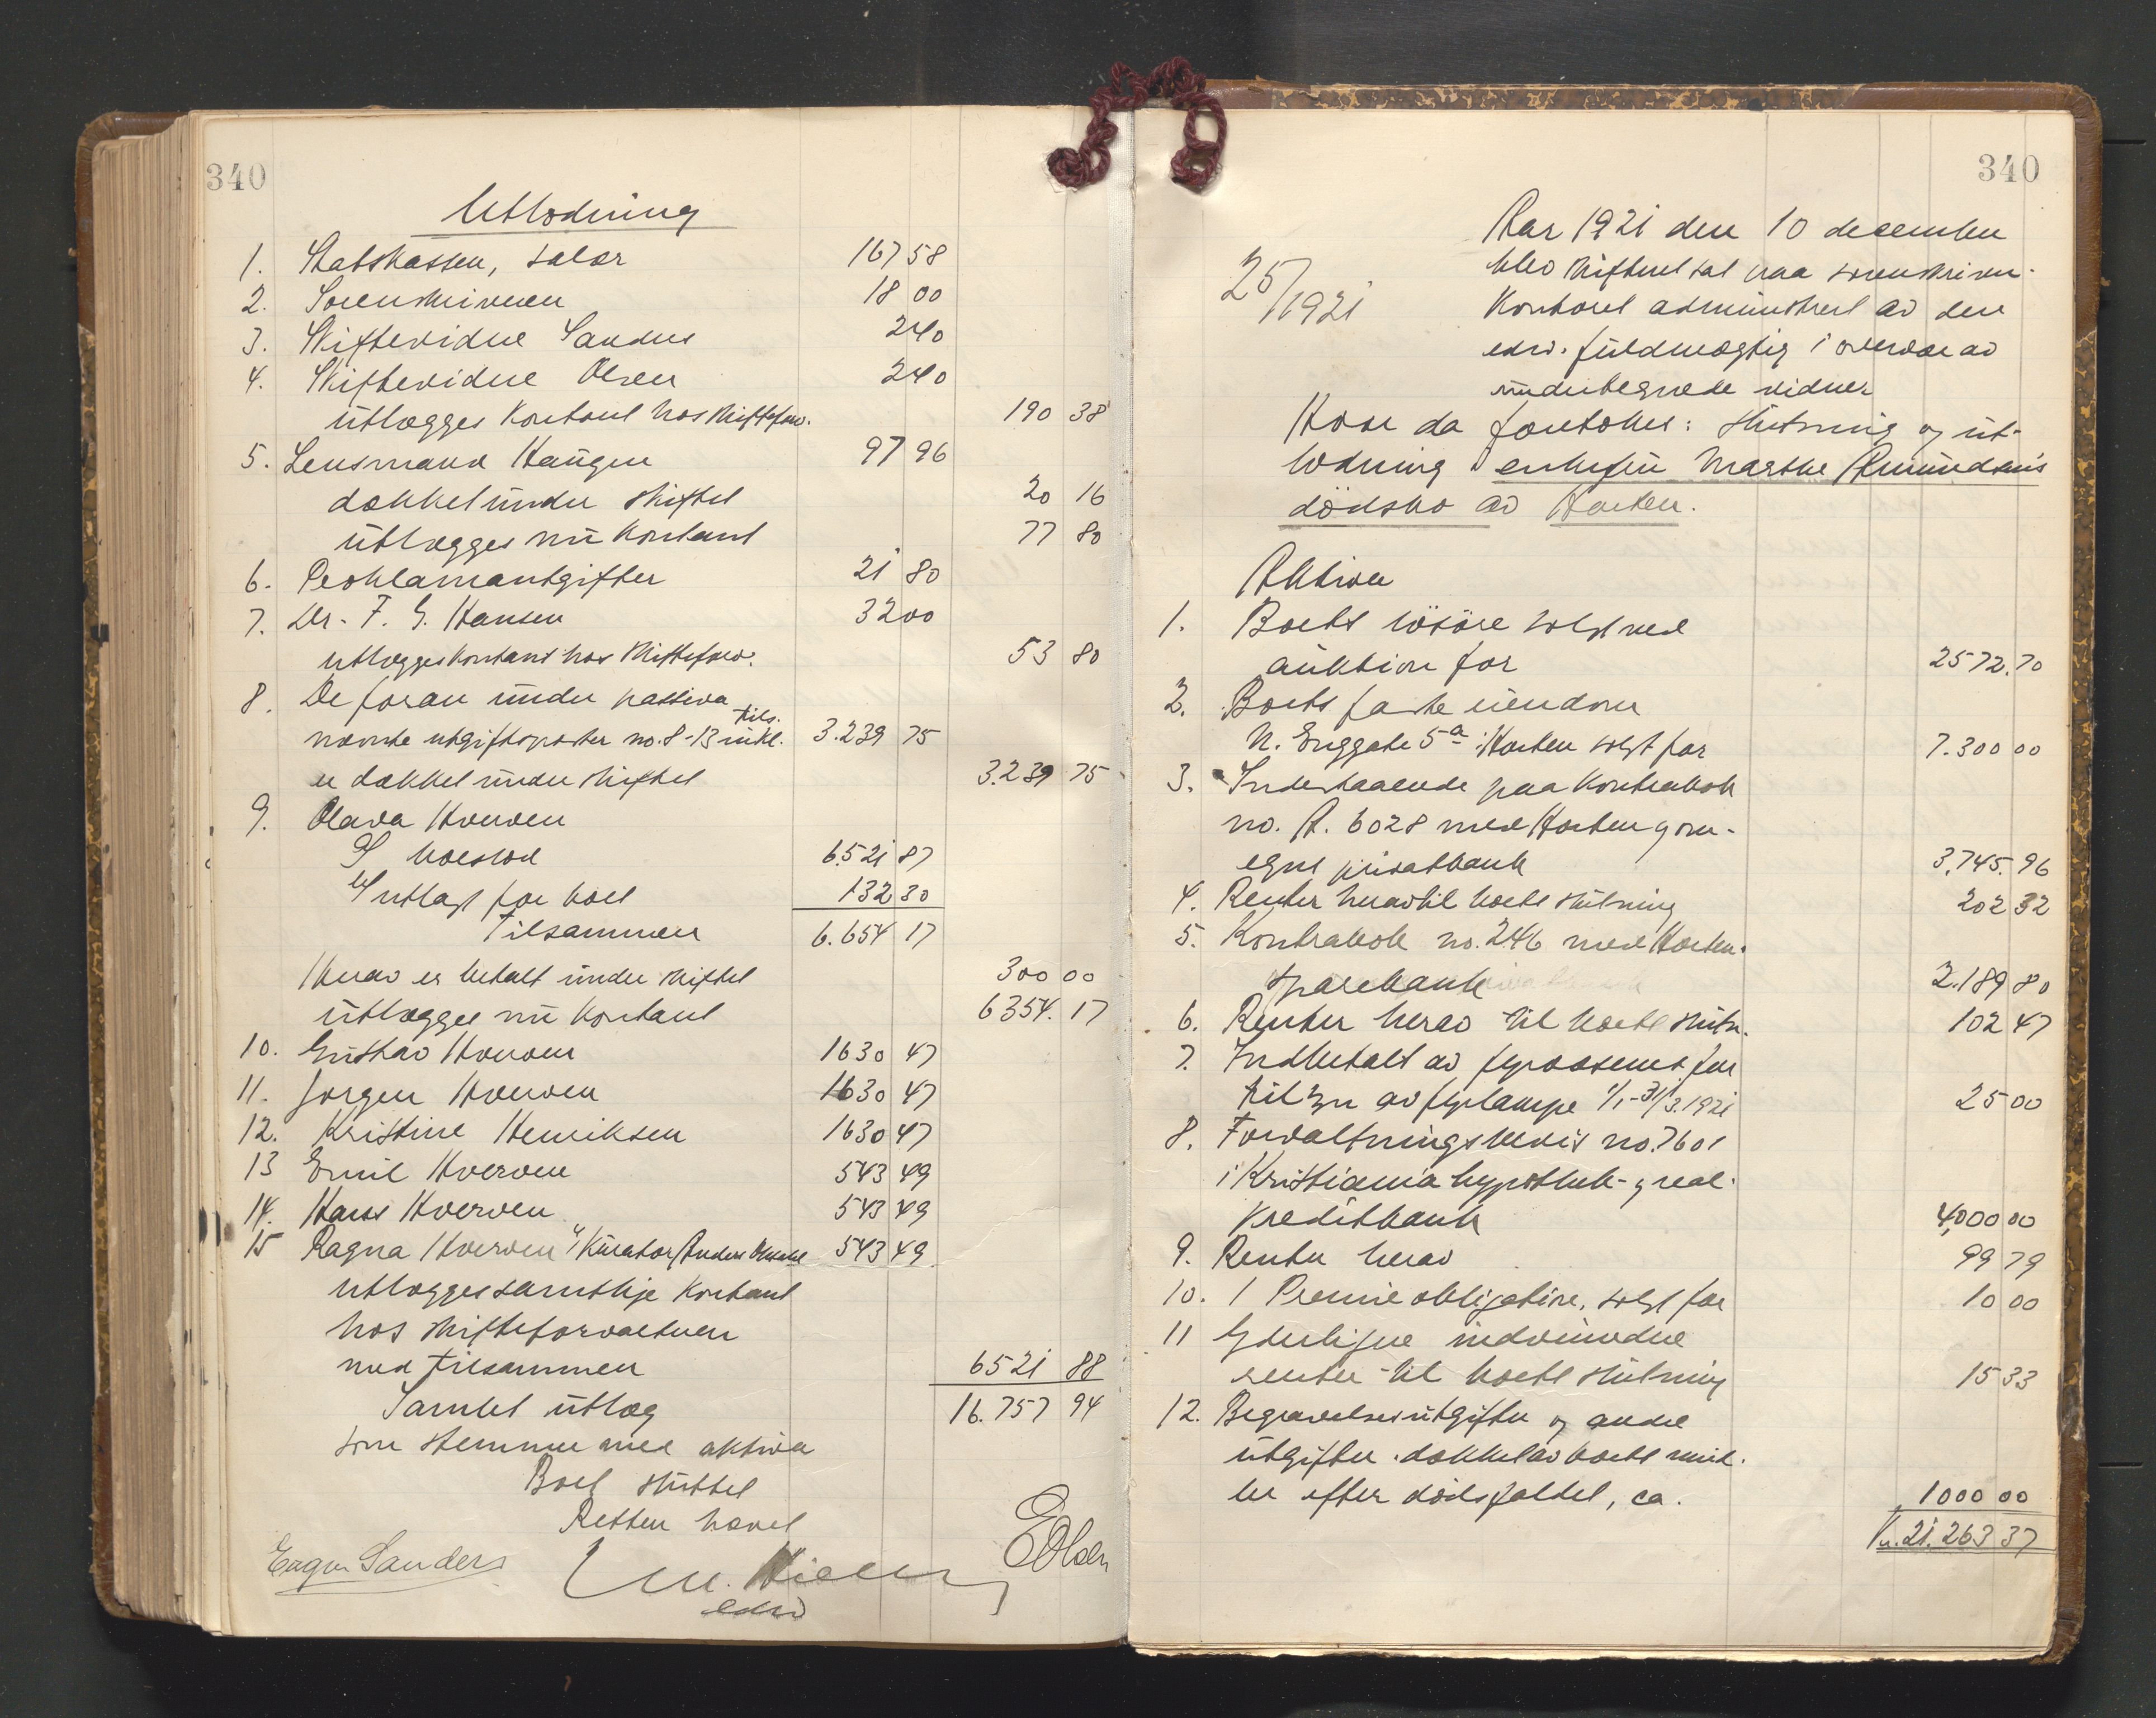 340
Utlodning
1. Statskassen, salær 167 58
2. Sorenskriveren 18 00
3. Skiftevidne Sanders 2 40
4. Skiftevidne Olsen 2 40
utlægges kontant hos skifteforv. 190 38
5. Lensmand Haugen 97 96
dækket under skiftet 20 16
utlægges nu kontant 77 80
6. Proklamautgifter 21 80
7. Dr. F. G. Hansen 32 00
utlægges kontant hos skifteforv. 53 80
8. De foran under passiva
nævnte utgiftsposter no. 8-13 inkl. tils. 3.239 75
er dækket under skiftet 3.239 75
9. Olava Hverven
I boeslod 6.521 87
Utlagt for boet 132 30
Tilsammen 6.654 17
Herav er betalt under skiftet 300 00
utlægges nu kontant 6354. 17
10. Gustav Hverven 1630 47
11. Jørgen Hverven 1630 47
12. Kristine Henriksen 1630 47
13 Emil Hverven 543 49
14. Hans Hverven 543 49
15 Ragna Hverven v/ Kurator Anders 543 49
utlægges samtlige kontant
hos skifteforvalteren
med tilsammen 6521 88
Samlet utlæg 16.757 94
som stemmer med aktiva
Boet sluttet
Retten hævet
Sanders
EOlsen
edsv
340
Aar 1921 den 10 december
blev skifteret sat paa sorenskriver-
kontoret administrert av den
edsv. fuldmægtig i overvær av
undertegnede vidner
25/1921
Hvor da foretokes: Slutning og ut-
lodning i enkefru Marthe Amundsens
dödsbo av Horten.
Aktiva
1. Boets lösöre solgt ved
auktion for 2572.70
2. Boets faste eiendom
N. Enggate 5a i Horten solgt for 7.300 00
3. Indestaaende paa kontrabok
no. A. 6028 med Horten og om-
egns privatbank 3.745.96
4. Renter herav til boets slutning 202 32
5. Kontrabok no. 246 med Horten.
Sparebank 2.189 80
6. Renter herav til boets slutn. 102 47
7. Indbetalt av fyrvæsenet for
tilsyn av fyrlampe 1/1-31/3.1921 25 00
8. Forvaltningsbevis no. 7601
i Kristiania hypothek- og real-
kreditbank 4.000 00
9. Renter herav 99 79
10. 1 Premieobligation, solgt for 10 00
11 Yderligere indvundne
renter til boets slutning 15 33
12. Begravelsesutgifter og andre
utgifter dækket av boets mid-
ler efter dödsfaldet, ca. 1000 00
Kr. 21.263 37